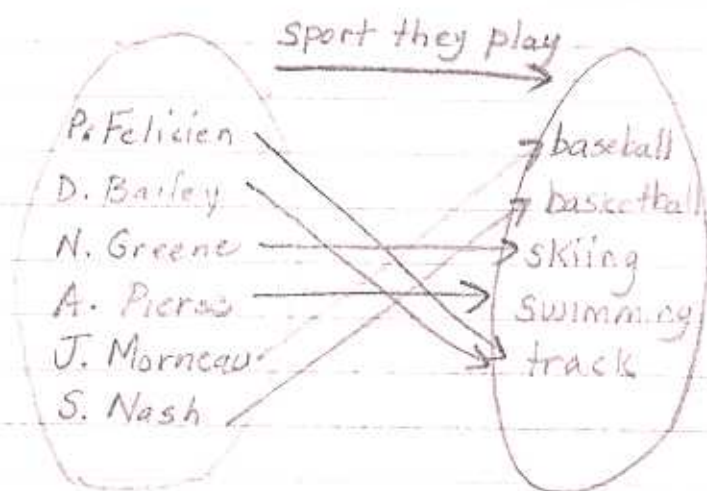 sport they play
P. Felicien
D. Bailey
N. Greene
A. Pierse
J. Morneau
S. Nash
baseball
basketball
skiing
swimming
track